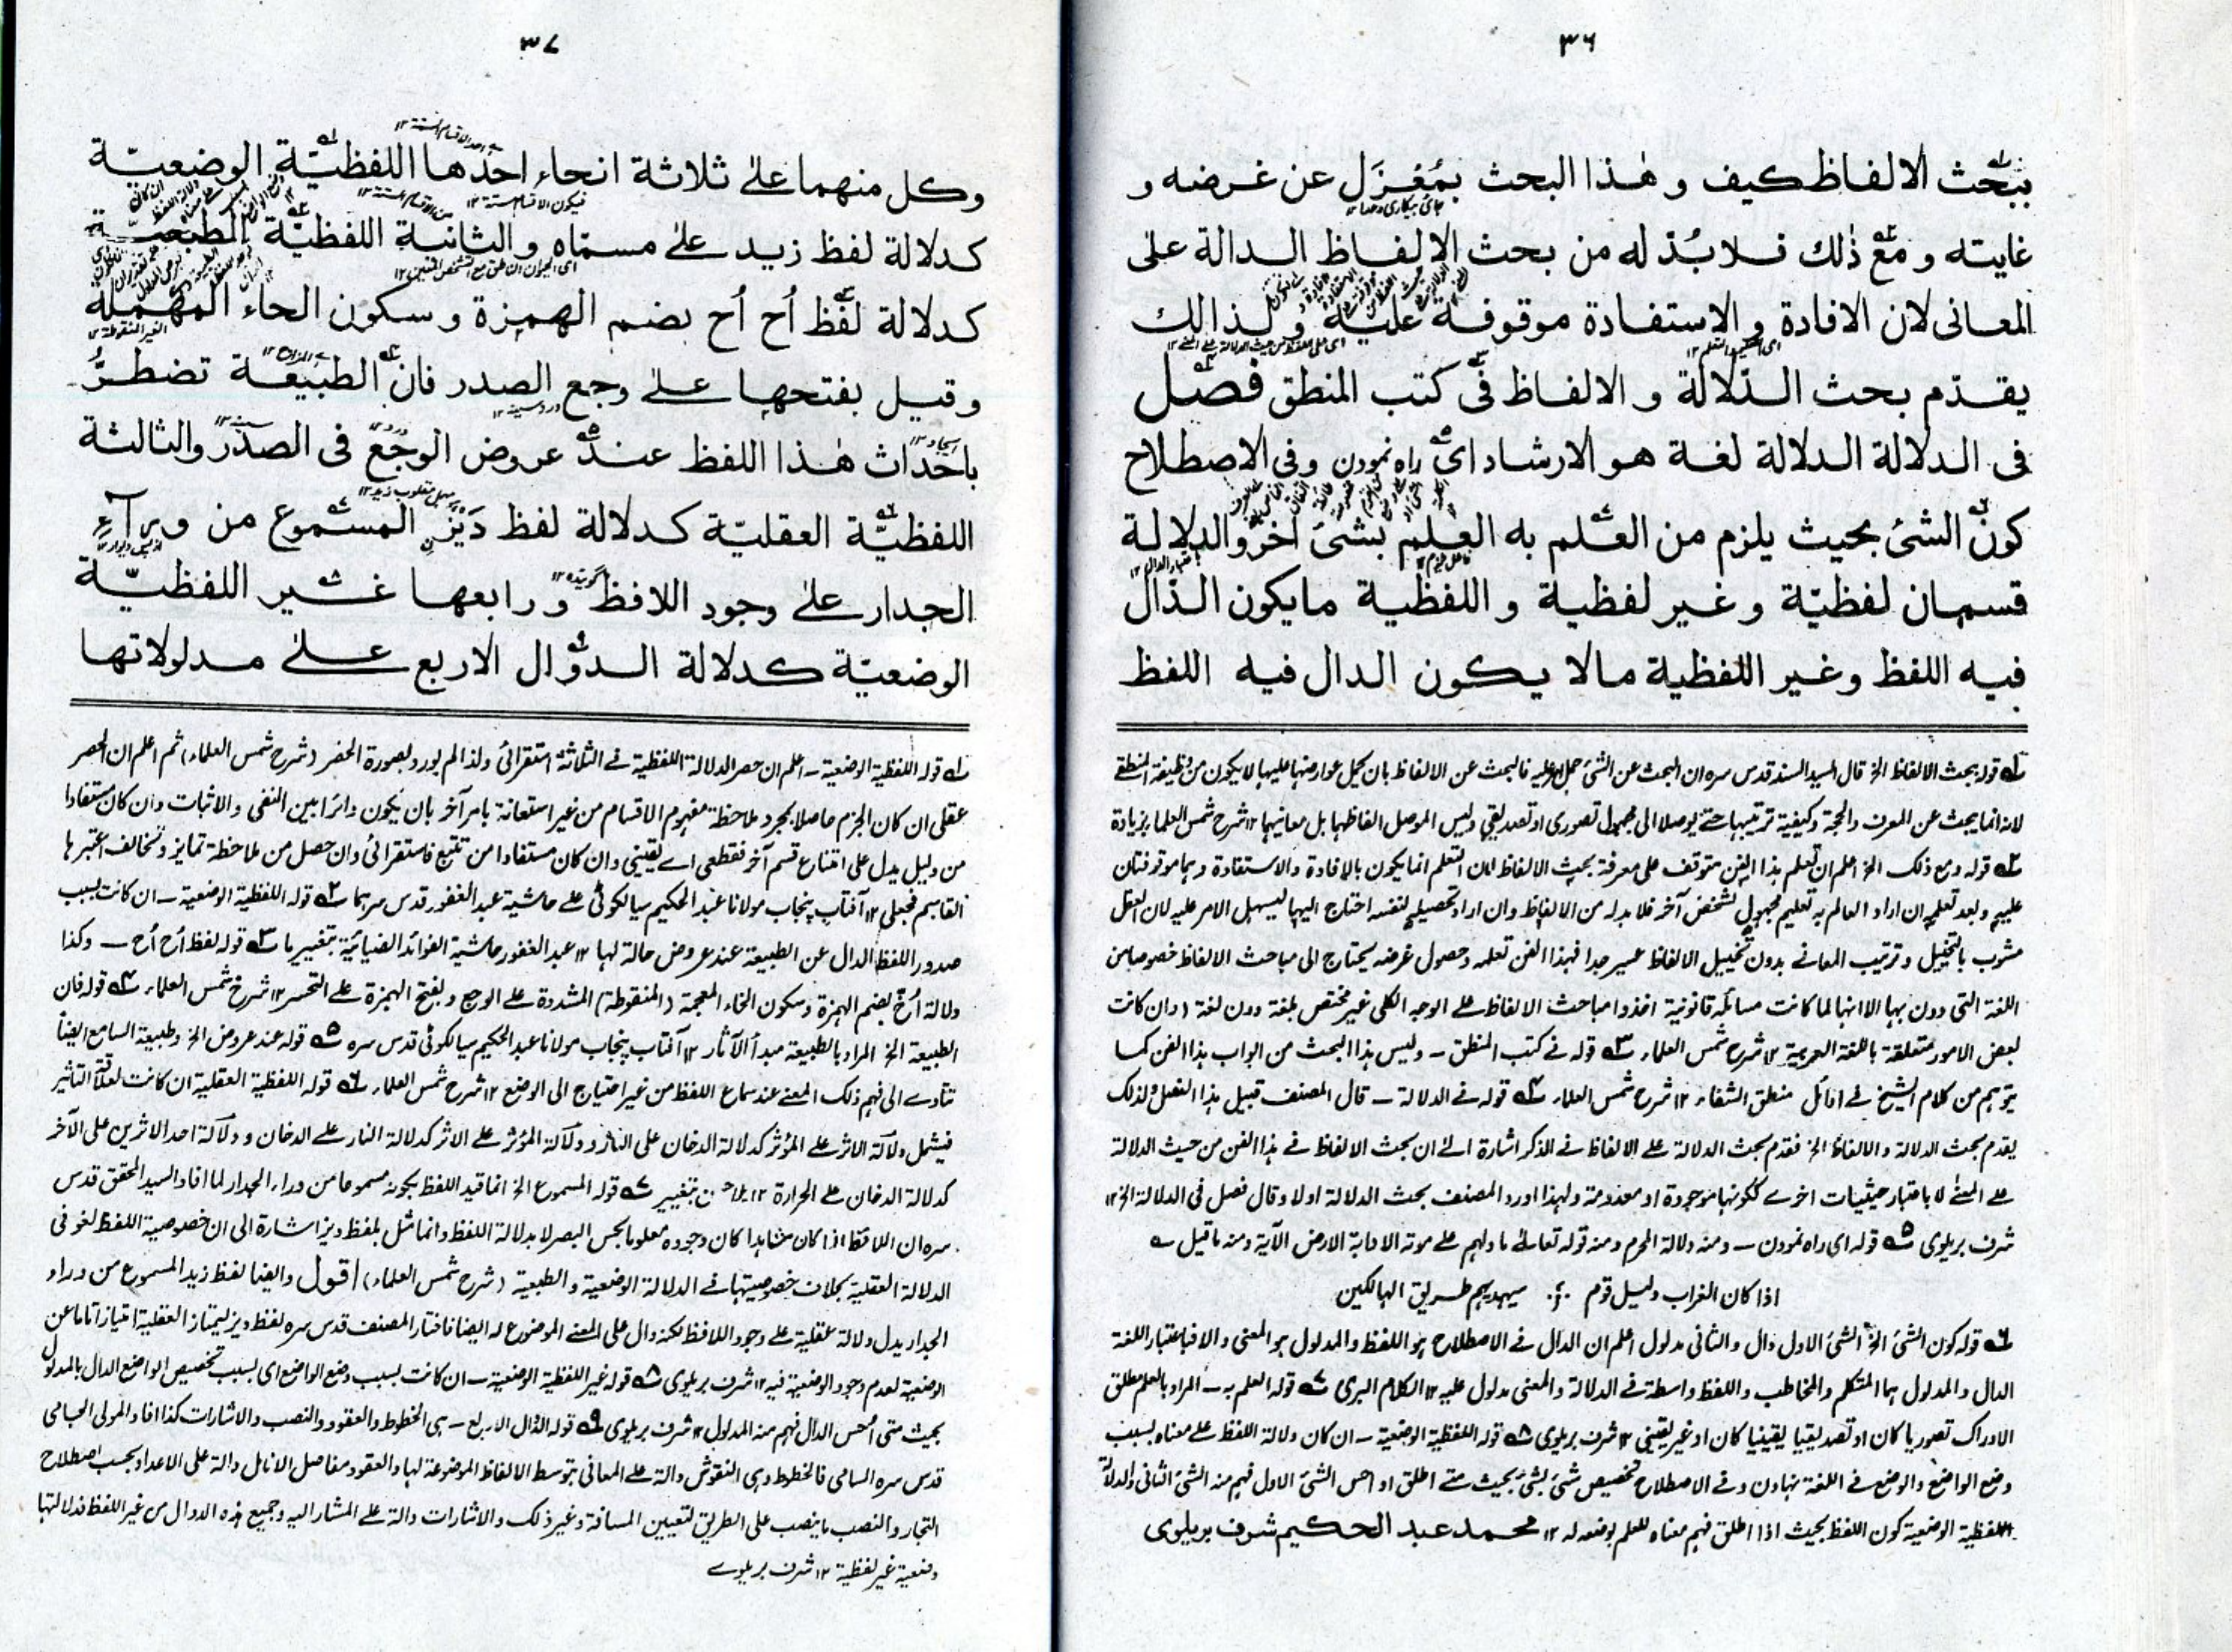 ٣٦
ببحث الالفاظ كيف و هٰذا البحث بمُعْزَل عن غرضه و
غايته و مع ذٰلك فلا بُدّ له من بحث الالفاظ الدالة على
المعانى لان الافادة و الاستفادة موقوفة عليه و لذالك
يقدّم بحث الدّلالة و الالفاظ فى كتب المنطق فصل
فى الدلالة الدلالة لغة هو الارشاد اى راه نمودن و فى الاصطلاح
كون الشئ بحيث يلزم من العلم به العلم بشئ اٰخر والدلالة
قسمان لفظيّة و غير لفظية و اللفظية ما يكون الدّال
فيه اللفظ و غير اللفظية مالا يكون الدال فيه اللفظ
لانه انما يبحث عن المعرف والحجة وكيفية ترتيبها حتى يوصلا الى مجهول تصورى او تصديقي وليس الموصل الفاظهما بل معانيهما ١٢ شرح شمس العلما بزيادة
مشوب بالتخييل و ترتيب المعانى بدون تخييل الالفاظ عسير جدا فهذا الفن تعلمه وحصول غرضه يحتاج الى مباحث الالفاظ خصوصا من
اللغة التى دون بها الا انها لما كانت مسائله قانونية اخذوا مباحث الالفاظ على الوجه الكلى غير مختص بلغة دون لغة (وان كانت
بعض الامور متعلقة باللغة العربية ١٢ شرح شمس العلماء ٣ قوله فى كتب المنطق ــ وليس هذا البحث من ابواب هذا الفن كما
يتوهم من كلام الشيخ فى اوائل منطق الشفاء ١٢ شرح شمس العلماء ٤ قوله فى الدلالة ــ قال المصنف قبيل هذا الفصل ولذلك
يقدم بحث الدلالة والالفاظ الخ فقدم بحث الدلالة على الالفاظ فى الذكر اشارة الى ان بحث الالفاظ فى هذا الفن من حيث الدلالة
على المعنى لا باعتبار حيثيات اخرى ككونها موجودة او معدومة ولهذا اورد المصنف بحث الدلالة اولا وقال فصل فى الدلالة الخ ١٢
شرف بريلوى ٥ قوله اى راه نمودن ــ ومنه دلالة المحرم ومنه قوله تعالى ما دلهم على موته الا دابة الارض الآية ومنه ما قيل
اذا كان الغراب دليل قوم سيهديهم طريق الهالكين
٦ قوله كون الشئ الخ الشئ الاول دال والثانى مدلول اعلم ان الدال فى الاصطلاح هو اللفظ والمدلول هو المعنى والا فباعتبار اللغة
الدال والمدلول هما المتكلم والمخاطب واللفظ واسطة فى الدلالة والمعنى مدلول عليه ١٢ الكلام البرى ٧ قوله العلم به ــ المراد بالعلم مطلق
الادراك تصوريا كان او تصديقيا يقينيا كان او غير يقينى ١٢ شرف بريلوى ٨ قوله اللفظية الوضعية ــ ان كان دلالة اللفظ على معناه بسبب
وضع الواضع والوضع فى اللغة نهادن وفى الاصطلاح تخصيص شئ بشئ بحيث متى اطلق او احس الشئ الاول فهم منه الشئ الثانى والدلالة
اللفظية الوضعية كون اللفظ بحيث اذا اطلق فهم معناه للعلم بوضعه له ١٢ محمد عبد الحكيم شرف بريلوى
٣٧
وكل منهما على ثلاثة انحاء احدها اللفظيّة الوضعيّة
كدلالة لفظ زيد على مسمّاه و الثانية اللفظيّة الطبعيّة
كدلالة لفظ اُح اُح بضم الهمزة و سكون الحاء المهملة
و قيل بفتحها على وجع الصدر فان الطبيعة تضطرُّ
باحداث هٰذا اللفظ عند عروض الوجع فى الصدر والثالثة
اللفظيّة العقليّة كدلالة لفظ دَيز المسموع من وراٰء
الجدار على وجود اللافظ و رابعها غير اللفظيّة
الوضعيّة كدلالة الدوّال الاربع على مدلولاتها
١ قوله اللفظية الوضعية ــ اعلم ان حصر الدلالة اللفظية فى الثلاثة استقرائى ولذا لم يورد بصورة الحصر (شرح شمس العلماء) ثم اعلم ان الحصر
عقلى ان كان الجزم حاصلا بمجرد ملاحظة مفهوم الاقسام من غير استعانة بامر آخر بان يكون دائرا بين النفى والاثبات وان كان مستفادا
من دليل يدل على امتناع قسم آخر فقطعى اى يقينى وان كان مستفادا من تتبع فاستقرائى وان حصل من ملاحظة تمايز وتخالف اعتبرها
القاسم فجعلى ١٢ آفتاب پنجاب مولانا عبد الحكيم سيالكوٹى على حاشية عبد الغفور قدس سرهما ٢ قوله اللفظية الوضعية ــ ان كانت بسبب
صدور اللفظ الدال عن الطبيعة عند عروض حالة لها ١٢ عبد الغفور حاشية الفوائد الضيائية بتغيير ما ٣ قوله لفظ اُح اُح ــ وكذا
دلالة اُخ بضم الهمزة وسكون الخاء المعجمة (المنقوطة) المشددة على الوجع وبفتح الهمزة على التحسر ١٢ شرح شمس العلماء ٤ قوله فان
الطبيعة الخ المراد بالطبيعة مبدأ الآثار ١٢ آفتاب پنجاب مولانا عبد الحكيم سيالكوٹى قدس سره ٥ قوله عند عروض الخ وطبيعة السامع ايضا
تتأدى الى فهم ذلك المعنى عند سماع اللفظ من غير احتياج الى الوضع ١٢ شرح شمس العلماء ٦ قوله اللفظية العقلية ان كانت لعلاقة التاثير
فيشمل دلالة الاثر على المؤثر كدلالة الدخان على النار ودلالة المؤثر على الاثر كدلالة النار على الدخان ودلالة احد الاثرين على الآخر
كدلالة الدخان على الحرارة ١٢ بتغيير ٧ قوله المسموع الخ انما قيد اللفظ بكونه مسموعا من وراء الجدار لما افاد السيد المحقق قدس
سره ان اللافظ اذا كان مشاهدا كان وجوده معلوما بحس البصر لا بدلالة اللفظ وانما مثل بلفظ ديز اشارة الى ان خصوصية اللفظ لغو فى
الدلالة العقلية بخلاف خصوصيتها فى الدلالة الوضعية والطبعية (شرح شمس العلماء) اقول وايضا لفظ زيد المسموع من وراء
الجدار يدل دلالة عقلية على وجود اللافظ لكنه دال على المعنى الموضوع له ايضا فاختار المصنف قدس سره لفظ ديز ليمتاز العقلية امتيازا تاما عن
الوضعية لعدم وجود الوضعية فيه ١٢ شرف بريلوى ٨ قوله غير اللفظية الوضعية ــ ان كانت بسبب وضع الواضع اى بسبب تخصيص الواضع الدال بالمدلول
بحيث متى احس الدال فهم منه المدلول ١٢ شرف بريلوى ٩ قوله الدوال الاربع ــ هى الخطوط والعقود والنصب والاشارات كذا افاد المولى الجامى
قدس سره السامى فالخطوط وهى النقوش دالة على المعانى بتوسط الالفاظ الموضوعة لها والعقود مفاصل الانامل دالة على الاعداد بحسب اصطلاح
التجار والنصب ما ينصب على الطريق لتعيين المسافة وغير ذلك والاشارات دالة على المشار اليه وجميع هذه الدوال من غير اللفظ فدلالتها
وضعية غير لفظية ١٢ شرف بريلوى